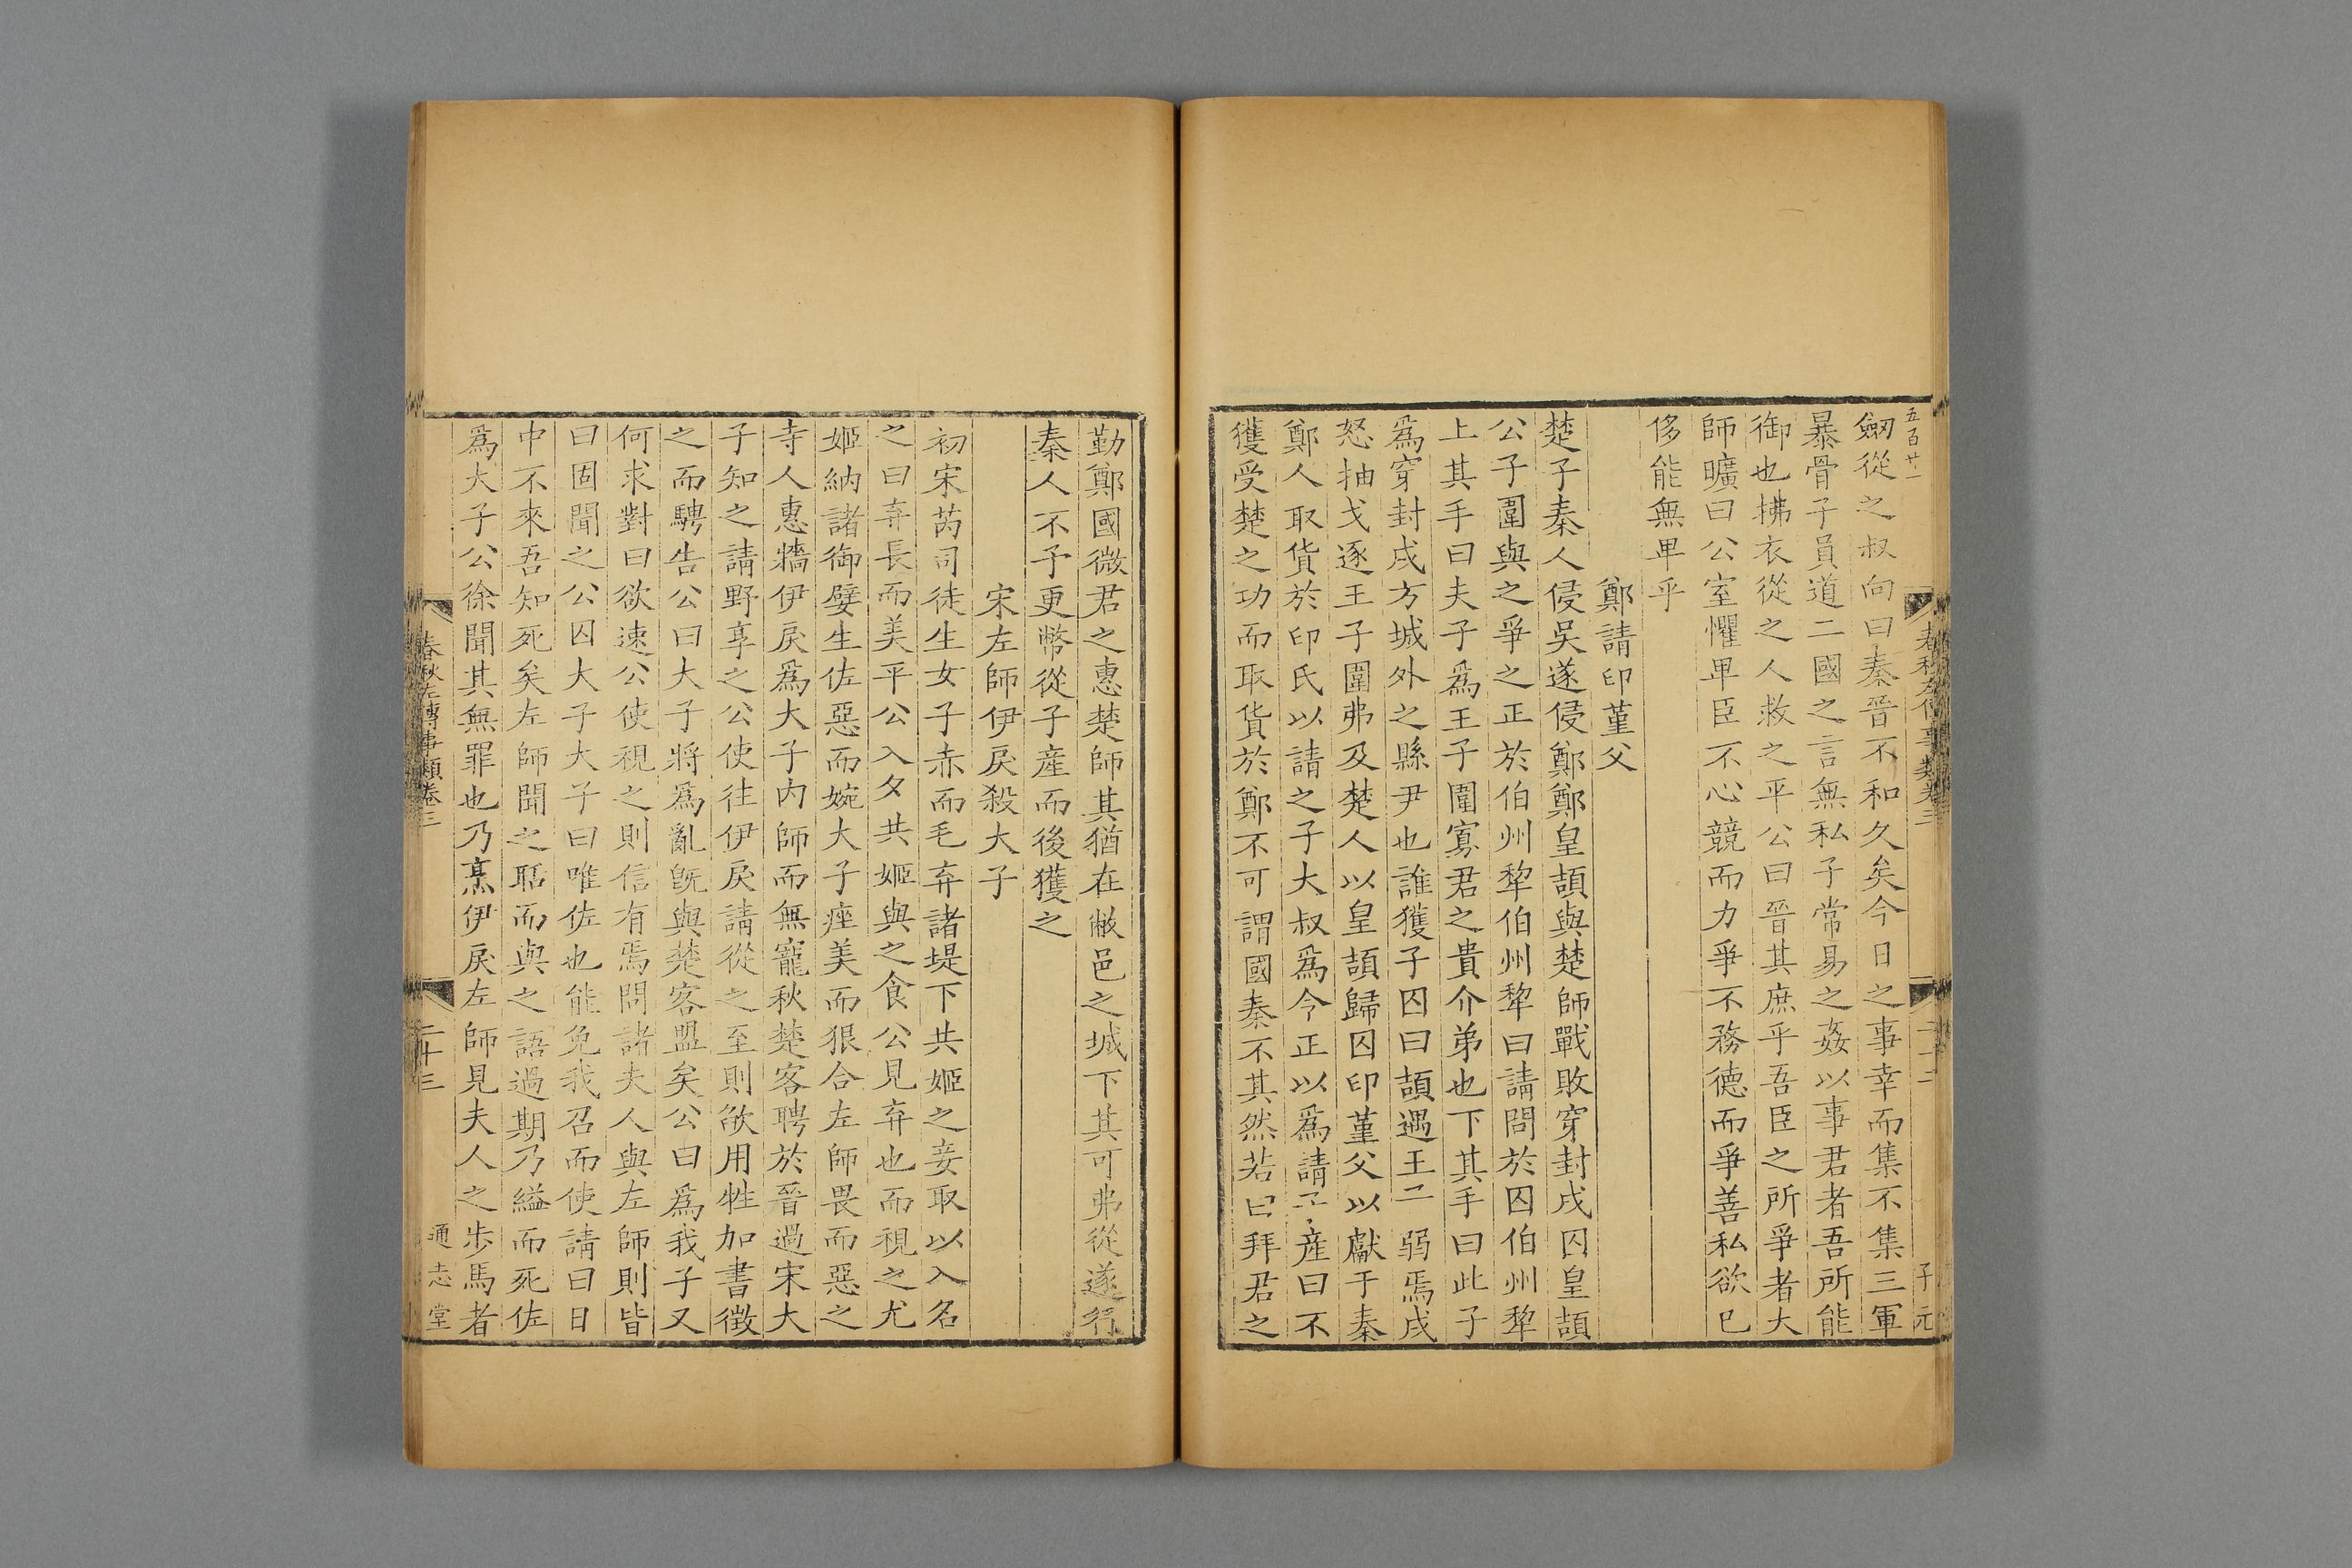 五百廿一
劒從之叔向曰秦晉不和久矣今日之事幸而集不集三軍
暴骨子員道二國之言無私子常易之姦以事君者吾所能
御也拂衣從之人救之平公曰晉其庶乎吾臣之所爭者大
師曠曰公室懼卑臣不心競而力爭不務德而爭善私欲已
侈能無卑乎
鄭請印堇父
楚子秦人侵吳遂侵鄭鄭皇頡與楚師戰敗穿封戌囚皇頡
公子圍與之爭之正於伯州犂伯州犂曰請問於囚伯州犂
上其手曰夫子爲王子圍寡君之貴介弟也下其手曰此子
爲穿封戌方城外之縣尹也誰獲子囚曰頡遇王子弱焉戌
怒抽戈逐王子圍弗及楚人以皇頡歸囚印堇父以獻于秦
鄭人取貨於印氏以請之子大叔爲令正以爲請子産曰不
獲受楚之功而取貨於鄭不可謂國秦不其然若曰拜君之
春秋左傳事類卷三
二十二
子元
勤鄭國微君之惠楚師其猶在敝邑之城下其可弗從遂行
秦人不予更幣從子産而後獲之
宋左師伊戾殺大子
初宋芮司徒生女子赤而毛弃諸堤下共姬之妾取以入名
之曰弃長而美平公入夕共姬與之食公見弃也而視之尤
姬納諸御嬖生佐惡而婉大子痤美而狠合左師畏而惡之
寺人惠牆伊戾爲大子内師而無寵秋楚客聘於晉過宋大
子知之請野享之公使往伊戾請從之至則欿用牲加書徵
之而騁告公曰大子將爲亂旣與楚客盟矣公曰爲我子又
何求對曰欲速公使視之則信有焉問諸夫人與左師則皆
曰固聞之公囚大子大子曰唯佐也能免我召而使請曰日
中不來吾知死矣左師聞之聒而與之語過期乃縊而死佐
爲大子公徐聞其無罪也乃烹伊戾左師見夫人之步馬者
春秋左傳事類卷三
二十三
通志堂